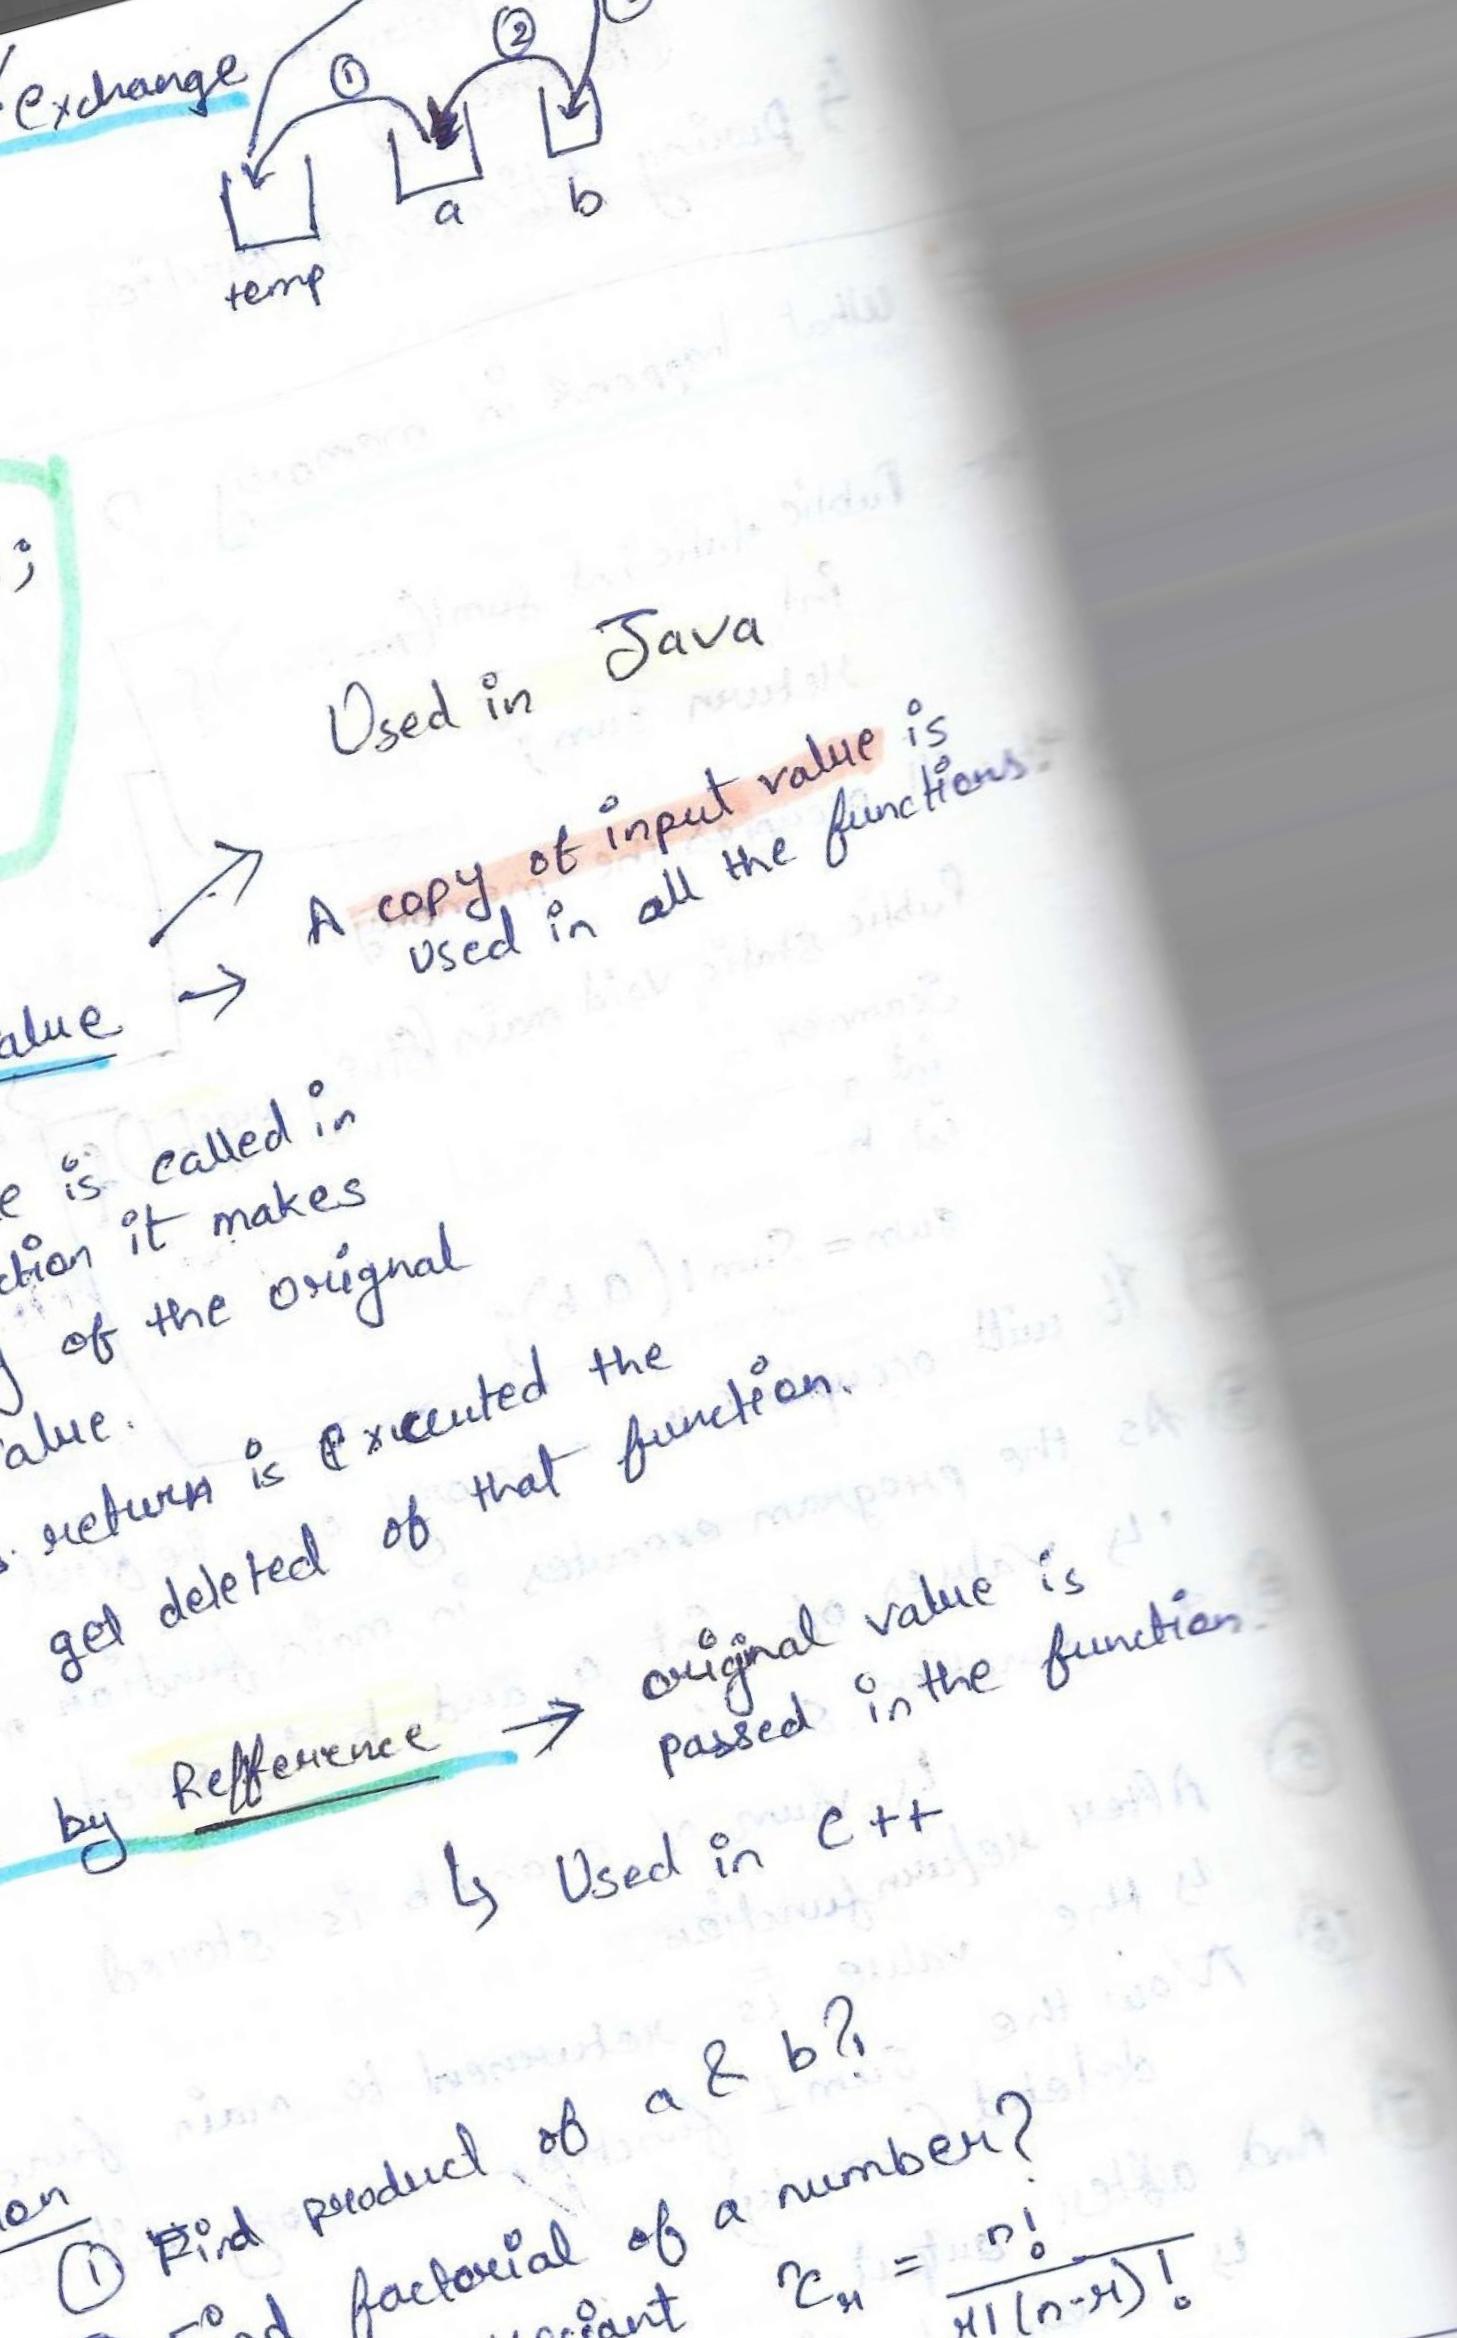 exchange
① ②
a b
temp
;
Used in Java
A copy of input value is
used in all the functions.
alue →
e is called in
ction it makes
of the orignal
alue.
return is executed the
get deleted of that function.
original value is
by Refference → passed in the function
↳ Used in C++
① Find product of a & b?
factorial of a number?
ⁿCᵣ = n! / r!(n-r)!